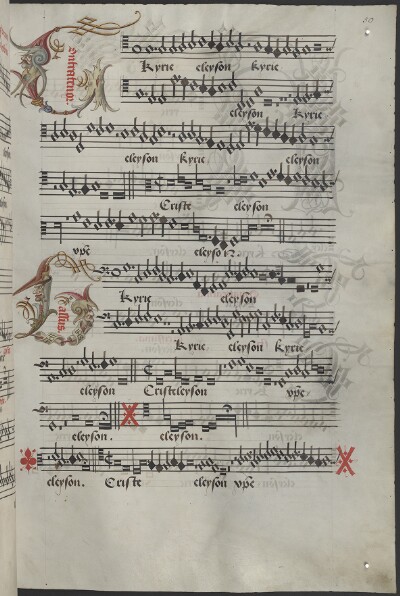 Contratenor
Kyrie eleyson Kyrie
eleyson Kyrie
eleyson Kyrie eleyson
Criste eleyson
xpe eleyson.
Bassus
Kyrie eleyson
Kyrie eleyson Kyrie
eleyson Cristeeleyson xpe
eleyson. eleyson.
eleyson. Criste eleyson xpe